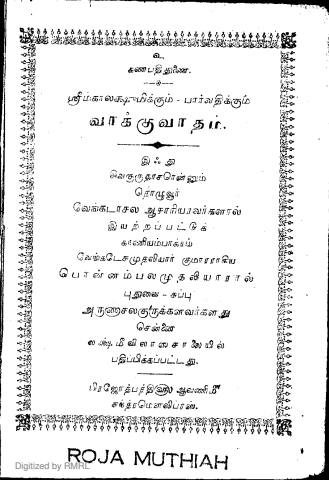 உ
கணபதிதுணை.
ஸ்ரீமகாலக்ஷுமிக்கும் - பார்வதிக்கும்
வாக்குவாதம்.
இஃது
வெகுருதாசரென்னும்
தொழுவூர்
வேங்கடாசல ஆசாரியரவர்களால்
இயற்றப்பட்டுக்
காணியம்பாக்கம்
வேங்கடேசமுதலியார் குமாரராகிய
பொன்னம்பலமுதலியாரால்
புதுவை - சுப்பு
அருணாசலகுருக்களவர்களது
சென்னை
லக்ஷ்மீவிலாசசாலையில்
பதிப்பிக்கப்பட்டது.
பிரஜோத்பத்திளு ஆவணிமீ
சந்த்ரமௌலிபரன்.
Digitized by RMRL
ROJA MUTHIAH